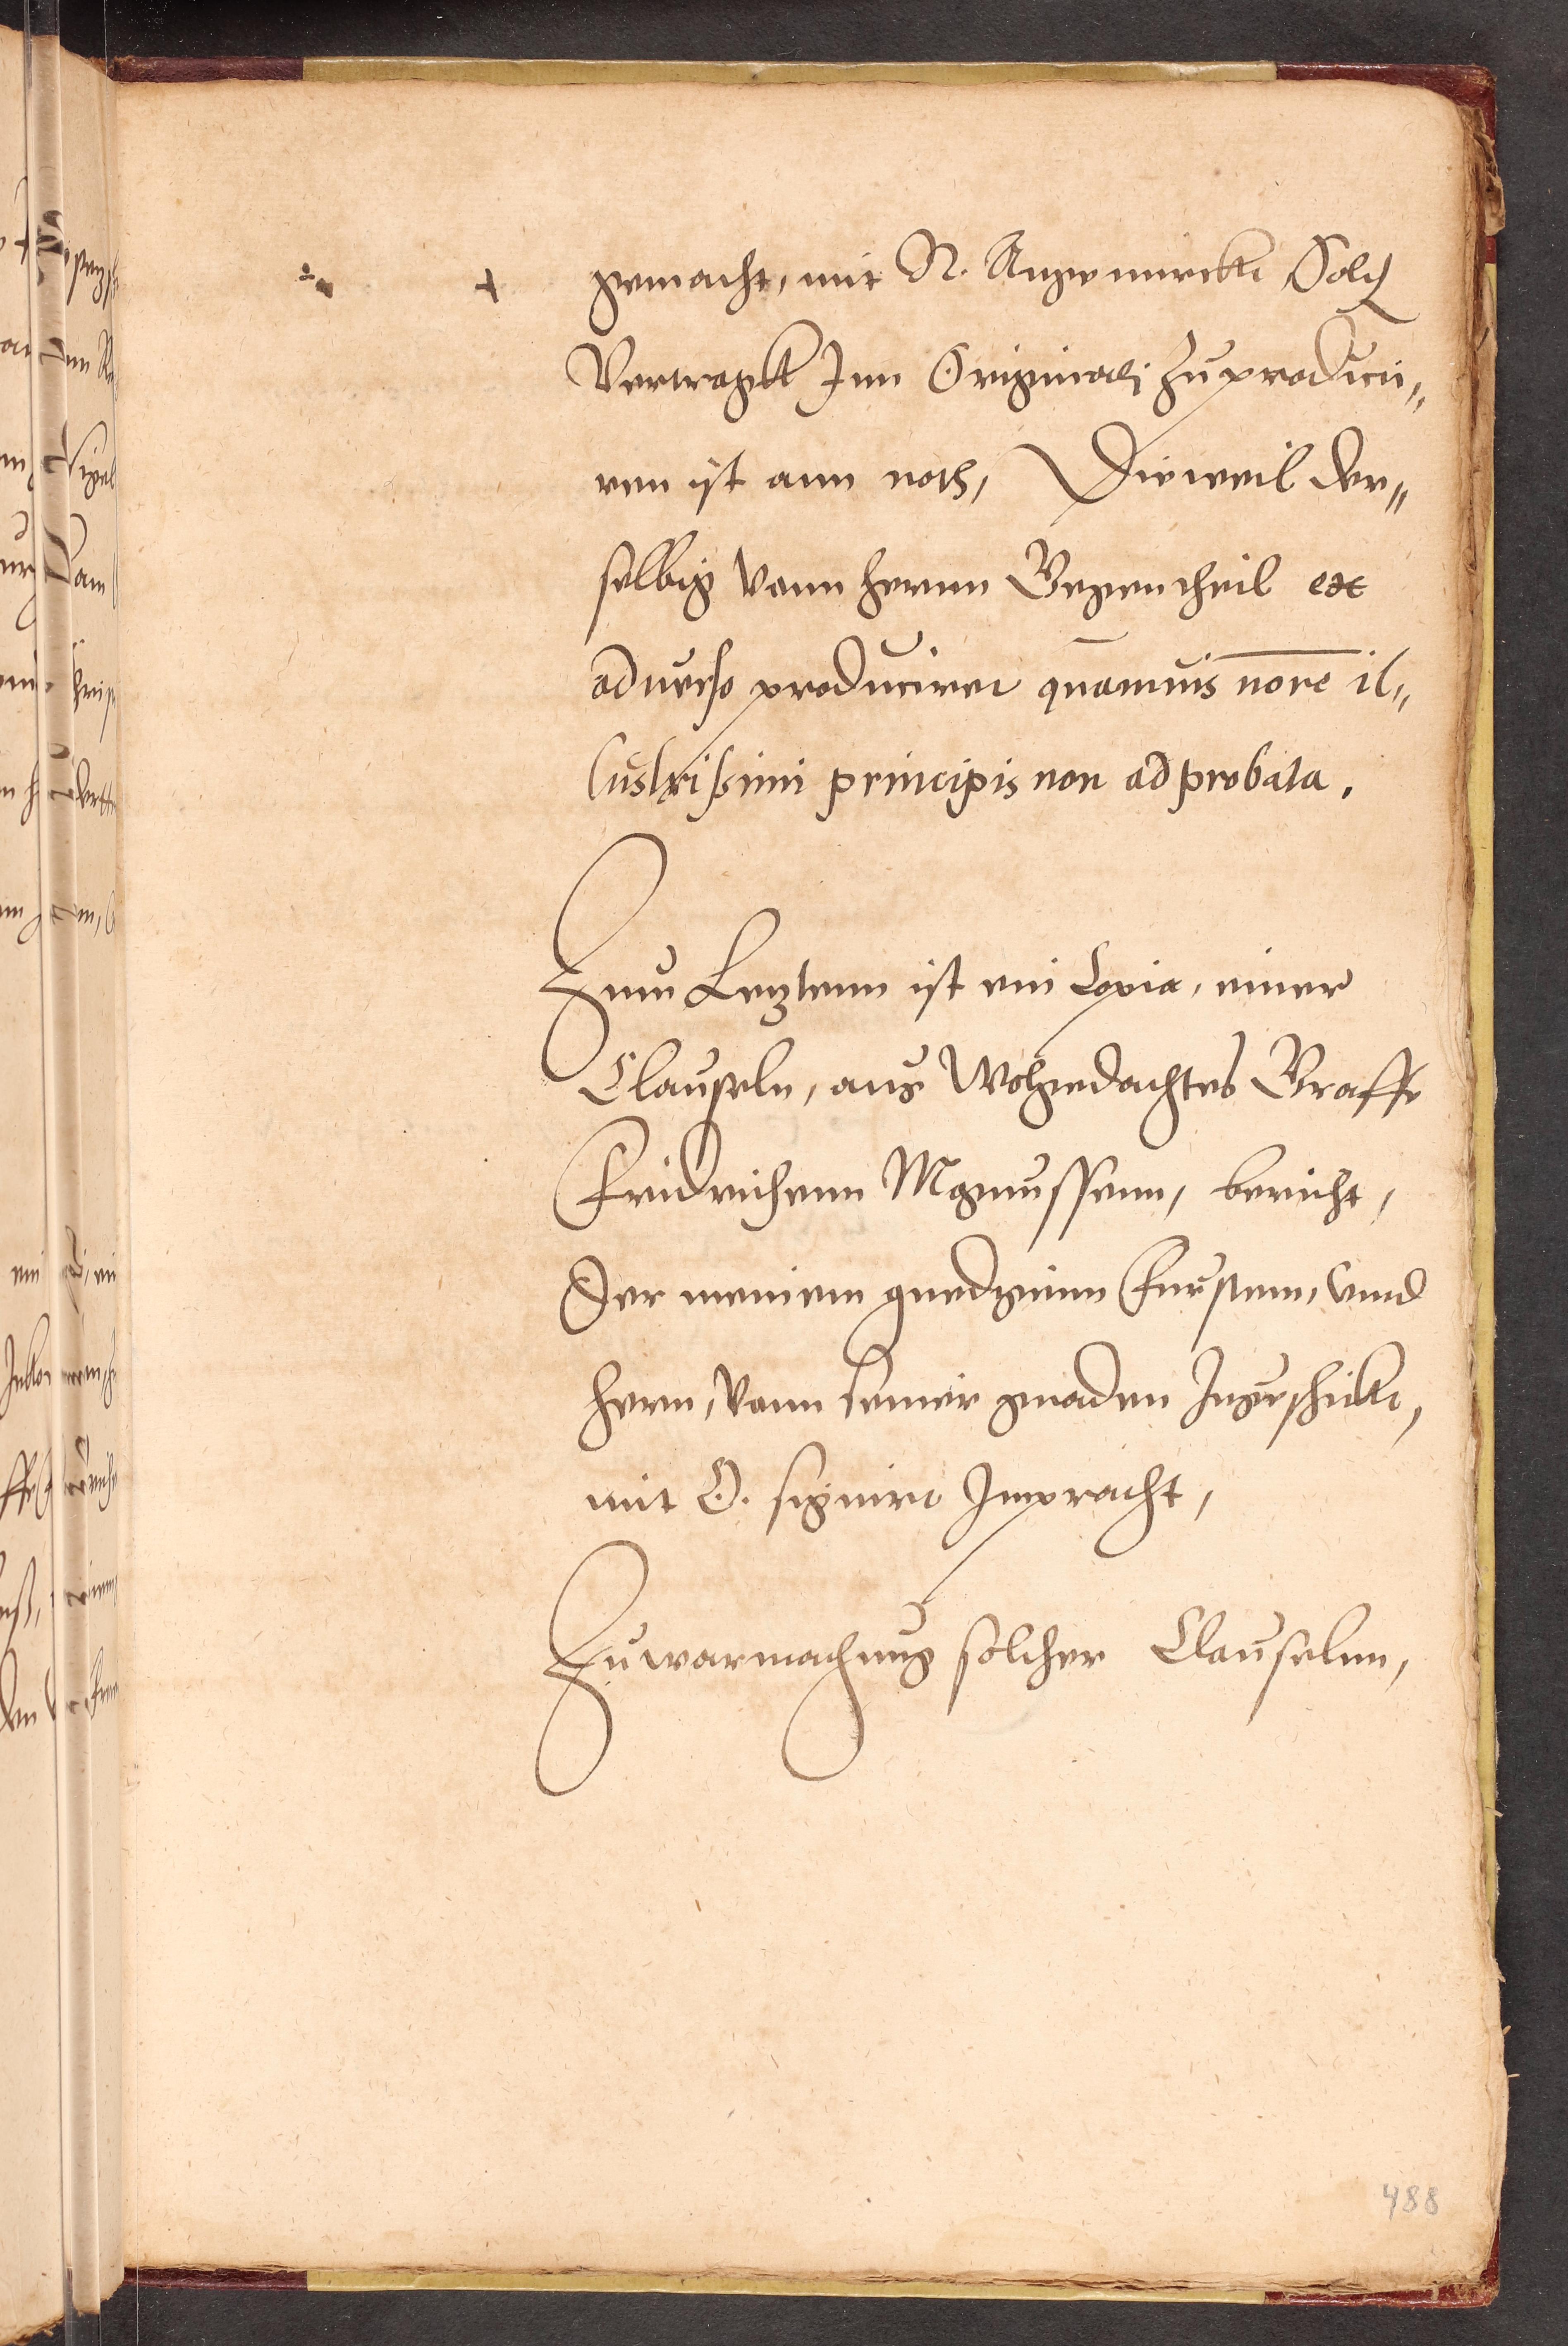 gemacht, mit N. Angemirckt Solch
Vertragkt Inn Originali zu producii„
ren ist ann noth, Dieweil der„
selbig vann herrnn Gegentheil ex
aduerso producirt quamuis nore il„
lustrissimi principis non adprobata.
Zum Letztenn ist ein Copia, einer
Clauseln, aus Wolgedachtes Graffe
Fridrichenn Magnussenn, bericht,
Der meinem gnedginn Furstenn, vnnd
hern, vann seiner gnaden Ingeschickt,
mit O. signirt Inpracht,
Zu warmachung solcher Clauselnn,
488